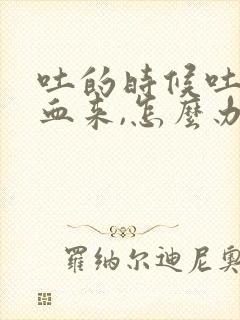 吐的時候吐
血来,怎麼办
羅纳尔迪尼奥